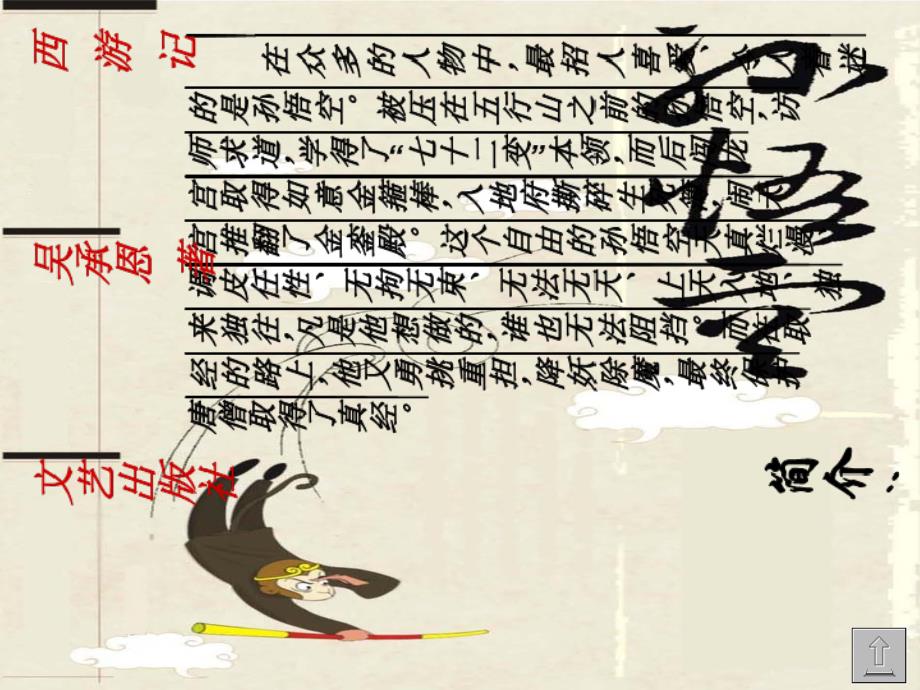 西游记
吴承恩 著
文艺出版社
孙悟空
简介:
在众多的人物中,最招人喜爱、令人着迷
的是孙悟空。 被压在五行山之前的孙悟空,访
师求道,学得了“七十二变”本领,而后闯龙
宫取得如意金箍棒,入地府撕碎生死簿,闹天
宫推翻了金銮殿。这个自由的孙悟空天真烂漫、
调皮任性、无拘无束、无法无天、上天入地、独
来独往,凡是他想做的,谁也无法阻挡。而在取
经的路上,他又勇挑重担,降妖除魔,最终保护
唐僧取得了真经。